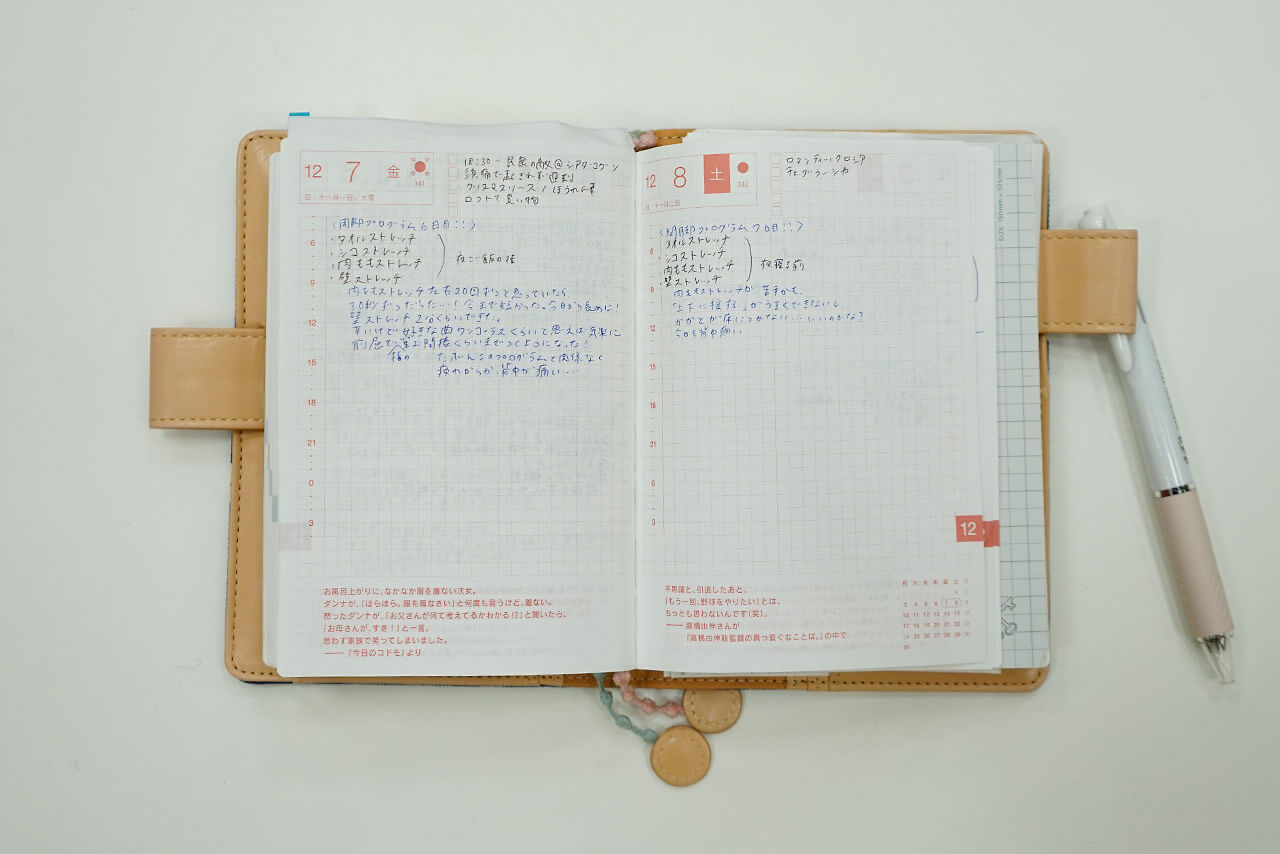 12 7 金
341
旧:十一月一日/大雪
18:30- 民衆の敵@シアターコクーン
頭痛で起きれず遅刻
クリスマスリース / ほうれん草
ロフトで買い物
〈開脚プログラム6日目!!〉
・タオルストレッチ
・シコストレッチ
・内ももストレッチ
・壁ストレッチ
夜ご飯の後
内ももストレッチ左右20回ずつと思っていたら
30秒ずつだった…!今まで短かった。今日から長めに!
壁ストレッチ2分くらいできた。
好きな曲ワンコーラスくらいと思えば気楽に
前屈で第2関節くらいまでつくようになった!
指の
たぶんこのプログラムと関係なく
疲れからか、背中が痛い…
6
9
12
15
18
21
0
3
お風呂上がりに、なかなか服を着ない次女。
ダンナが、「ほらほら。服を着なさい」と何度も言うけど、着ない。
怒ったダンナが、「お父さんが何て考えてるかわかる!?」と聞いたら、
「お母さんが、すき!」と一言。
思わず家族で笑ってしまいました。
――『今日のコドモ』より
12 8 土
342
旧:十一月二日
ロマンティックロシア
チェブラーシカ
〈開脚プログラム7日目!!〉
・タオルストレッチ
・シコストレッチ
・内ももストレッチ
・壁ストレッチ
夜寝る前
内ももストレッチが苦手かも。
「上下に揺する」がうまくできないし、
かかとが床につかない…いいのかな?
今日も背中痛い
6
9
12
15
18
21
0
3
12
不思議と、引退したあと、
「もう一回、野球をやりたい」とは、
ちっとも思わないんです(笑)。
――高橋由伸さんが
『高橋由伸前監督の真っ直ぐなことば。』の中で
月 火 水 木 金 土 日
1 2
3 4 5 6 7 8 9
10 11 12 13 14 15 16
17 18 19 20 21 22 23
24 25 26 27 28 29 30
31